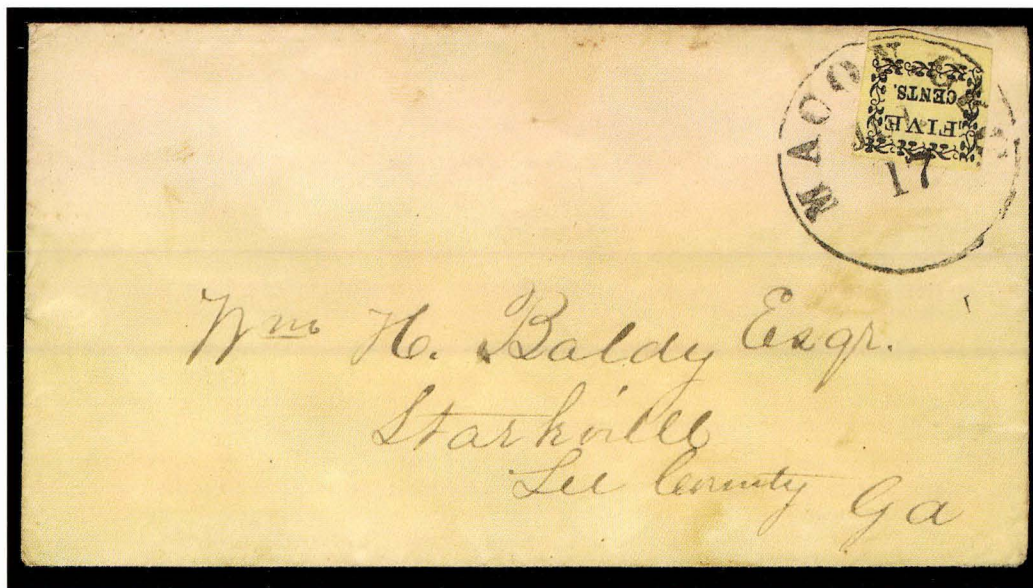 MACON GA
FIVE
CENTS.
17
Wm H. Baldy Esqr.
Starkville
Lee County Ga